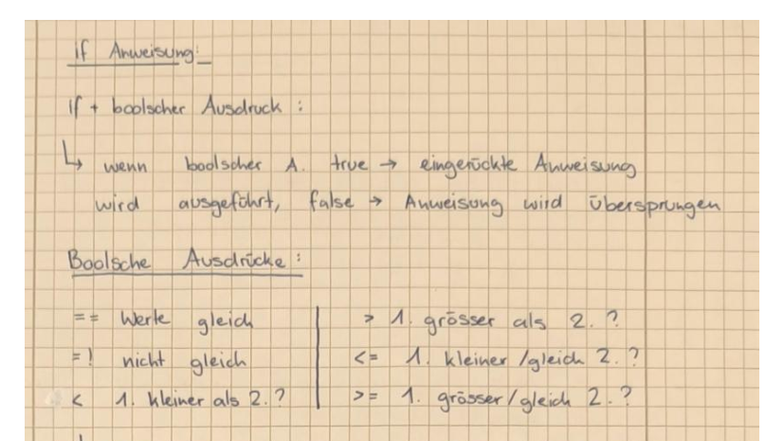 if Anweisung:
if + boolscher Ausdruck :
↳ wenn boolscher A. true → eingerückte Anweisung
wird ausgeführt, false → Anweisung wird übersprungen
Boolsche Ausdrücke :
== Werte gleich
=! nicht gleich
< 1. kleiner als 2. ?
> 1. grösser als 2. ?
<= 1. kleiner/gleich 2. ?
>= 1. grösser/gleich 2. ?